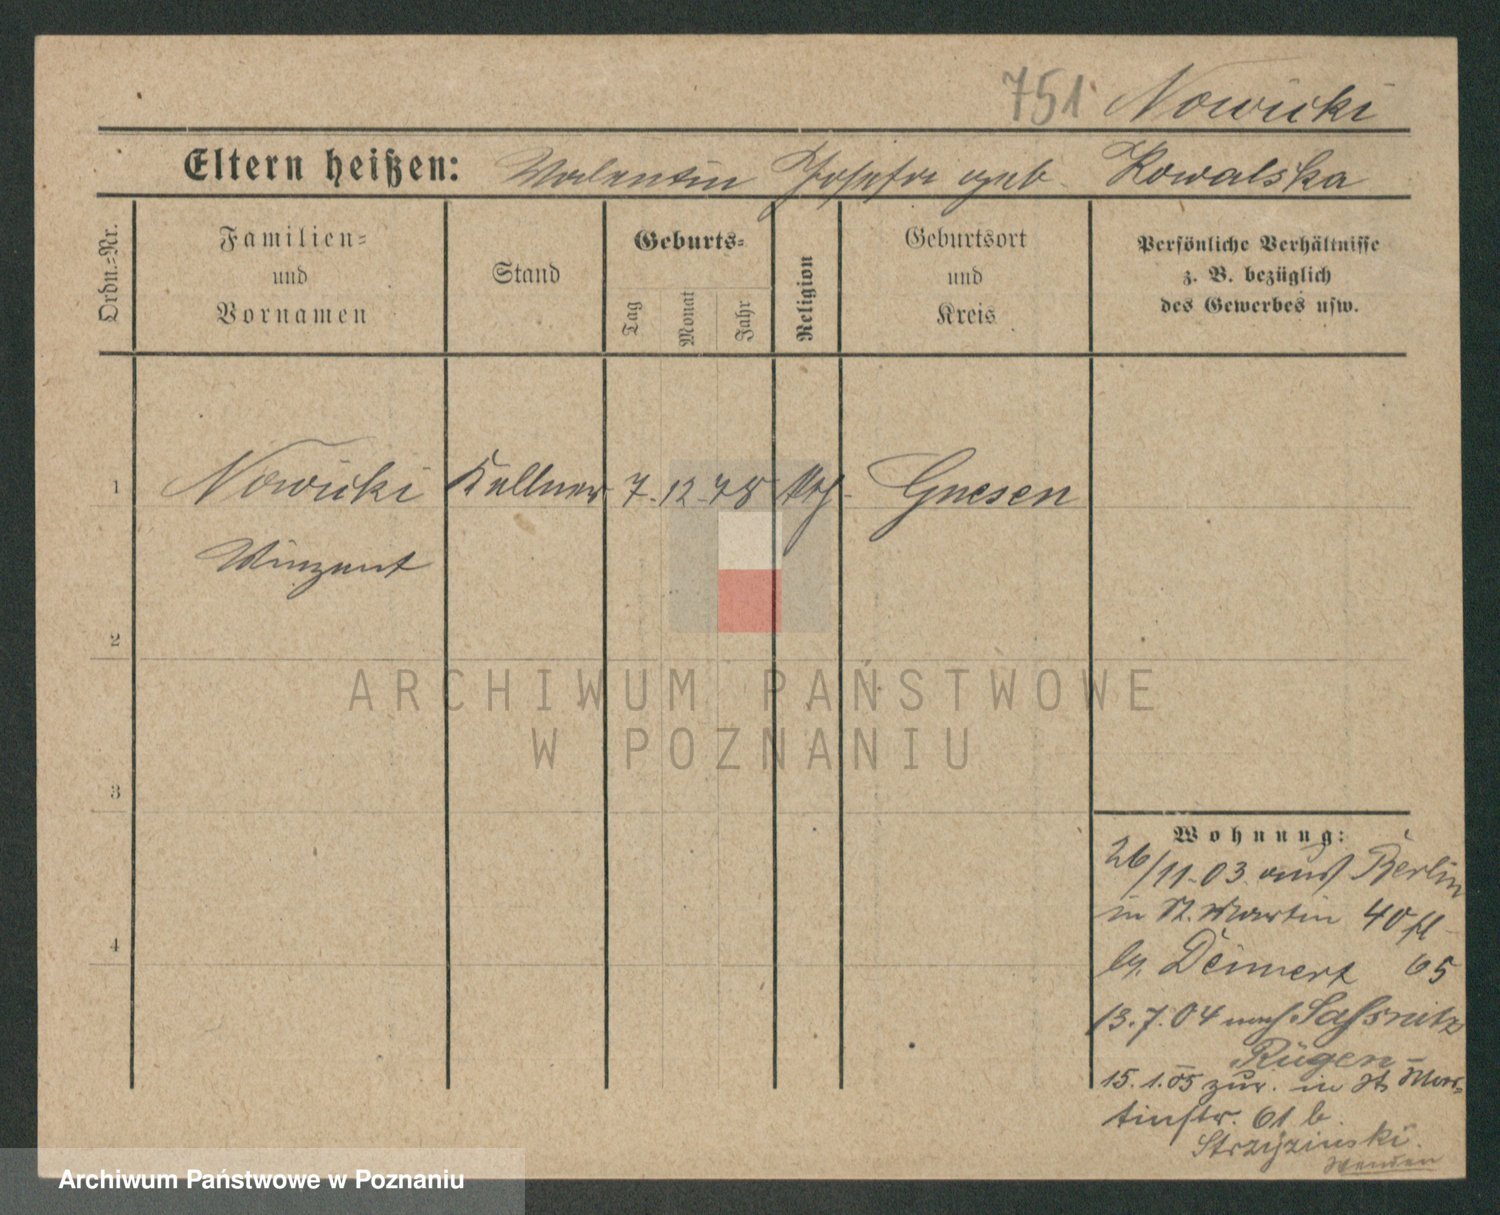 751 Nowicki
Eltern heißen: Valentin Josefa geb. Kowalska
Ordn.-Nr.
Familien- und Vornamen
Stand
Geburts-
Tag
Monat
Jahr
Religion
Geburtsort und Kreis
Persönliche Verhältnisse
z. B. bezüglich
des Gewerbes usw.
1 Nowicki Kellner 7. 12. 78 Gnesen
Vinzent
2
3
4
Wohnung:
26/11. 03 aus Berlin
in St. Martin 40
bei 65
13. 7. 04 nach Sassnitz
Rügen
15. 1. 05 zur. in St. Mar-
tinstr. 61 b.
Strzyzinski.
Wenden
ARCHIWUM PAŃSTWOWE
W POZNANIU
Archiwum Państwowe w Poznaniu